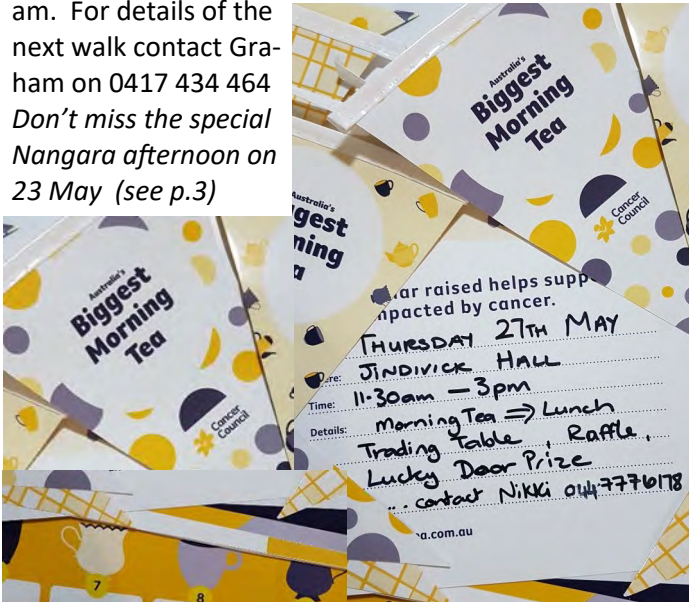 am. For details of the
next walk contact Gra-
ham on 0417 434 464
Don't miss the special
Nangara afternoon on
23 May (see p.3)
Australia's
Biggest
Morning
Tea
Cancer
Council
Australia's
gest
ning
a
Australia's
Biggest
Morning
Tea
Cancer
Council
ar raised helps supp
mpacted by cancer.
THURSDAY 27TH MAY
re: JINDIVICK HALL
Time: 11.30am — 3pm
Details: Morning Tea ⇒ Lunch
Trading Table , Raffle,
Lucky Door Prize
... contact Nikki 0447776178
a.com.au
7
8